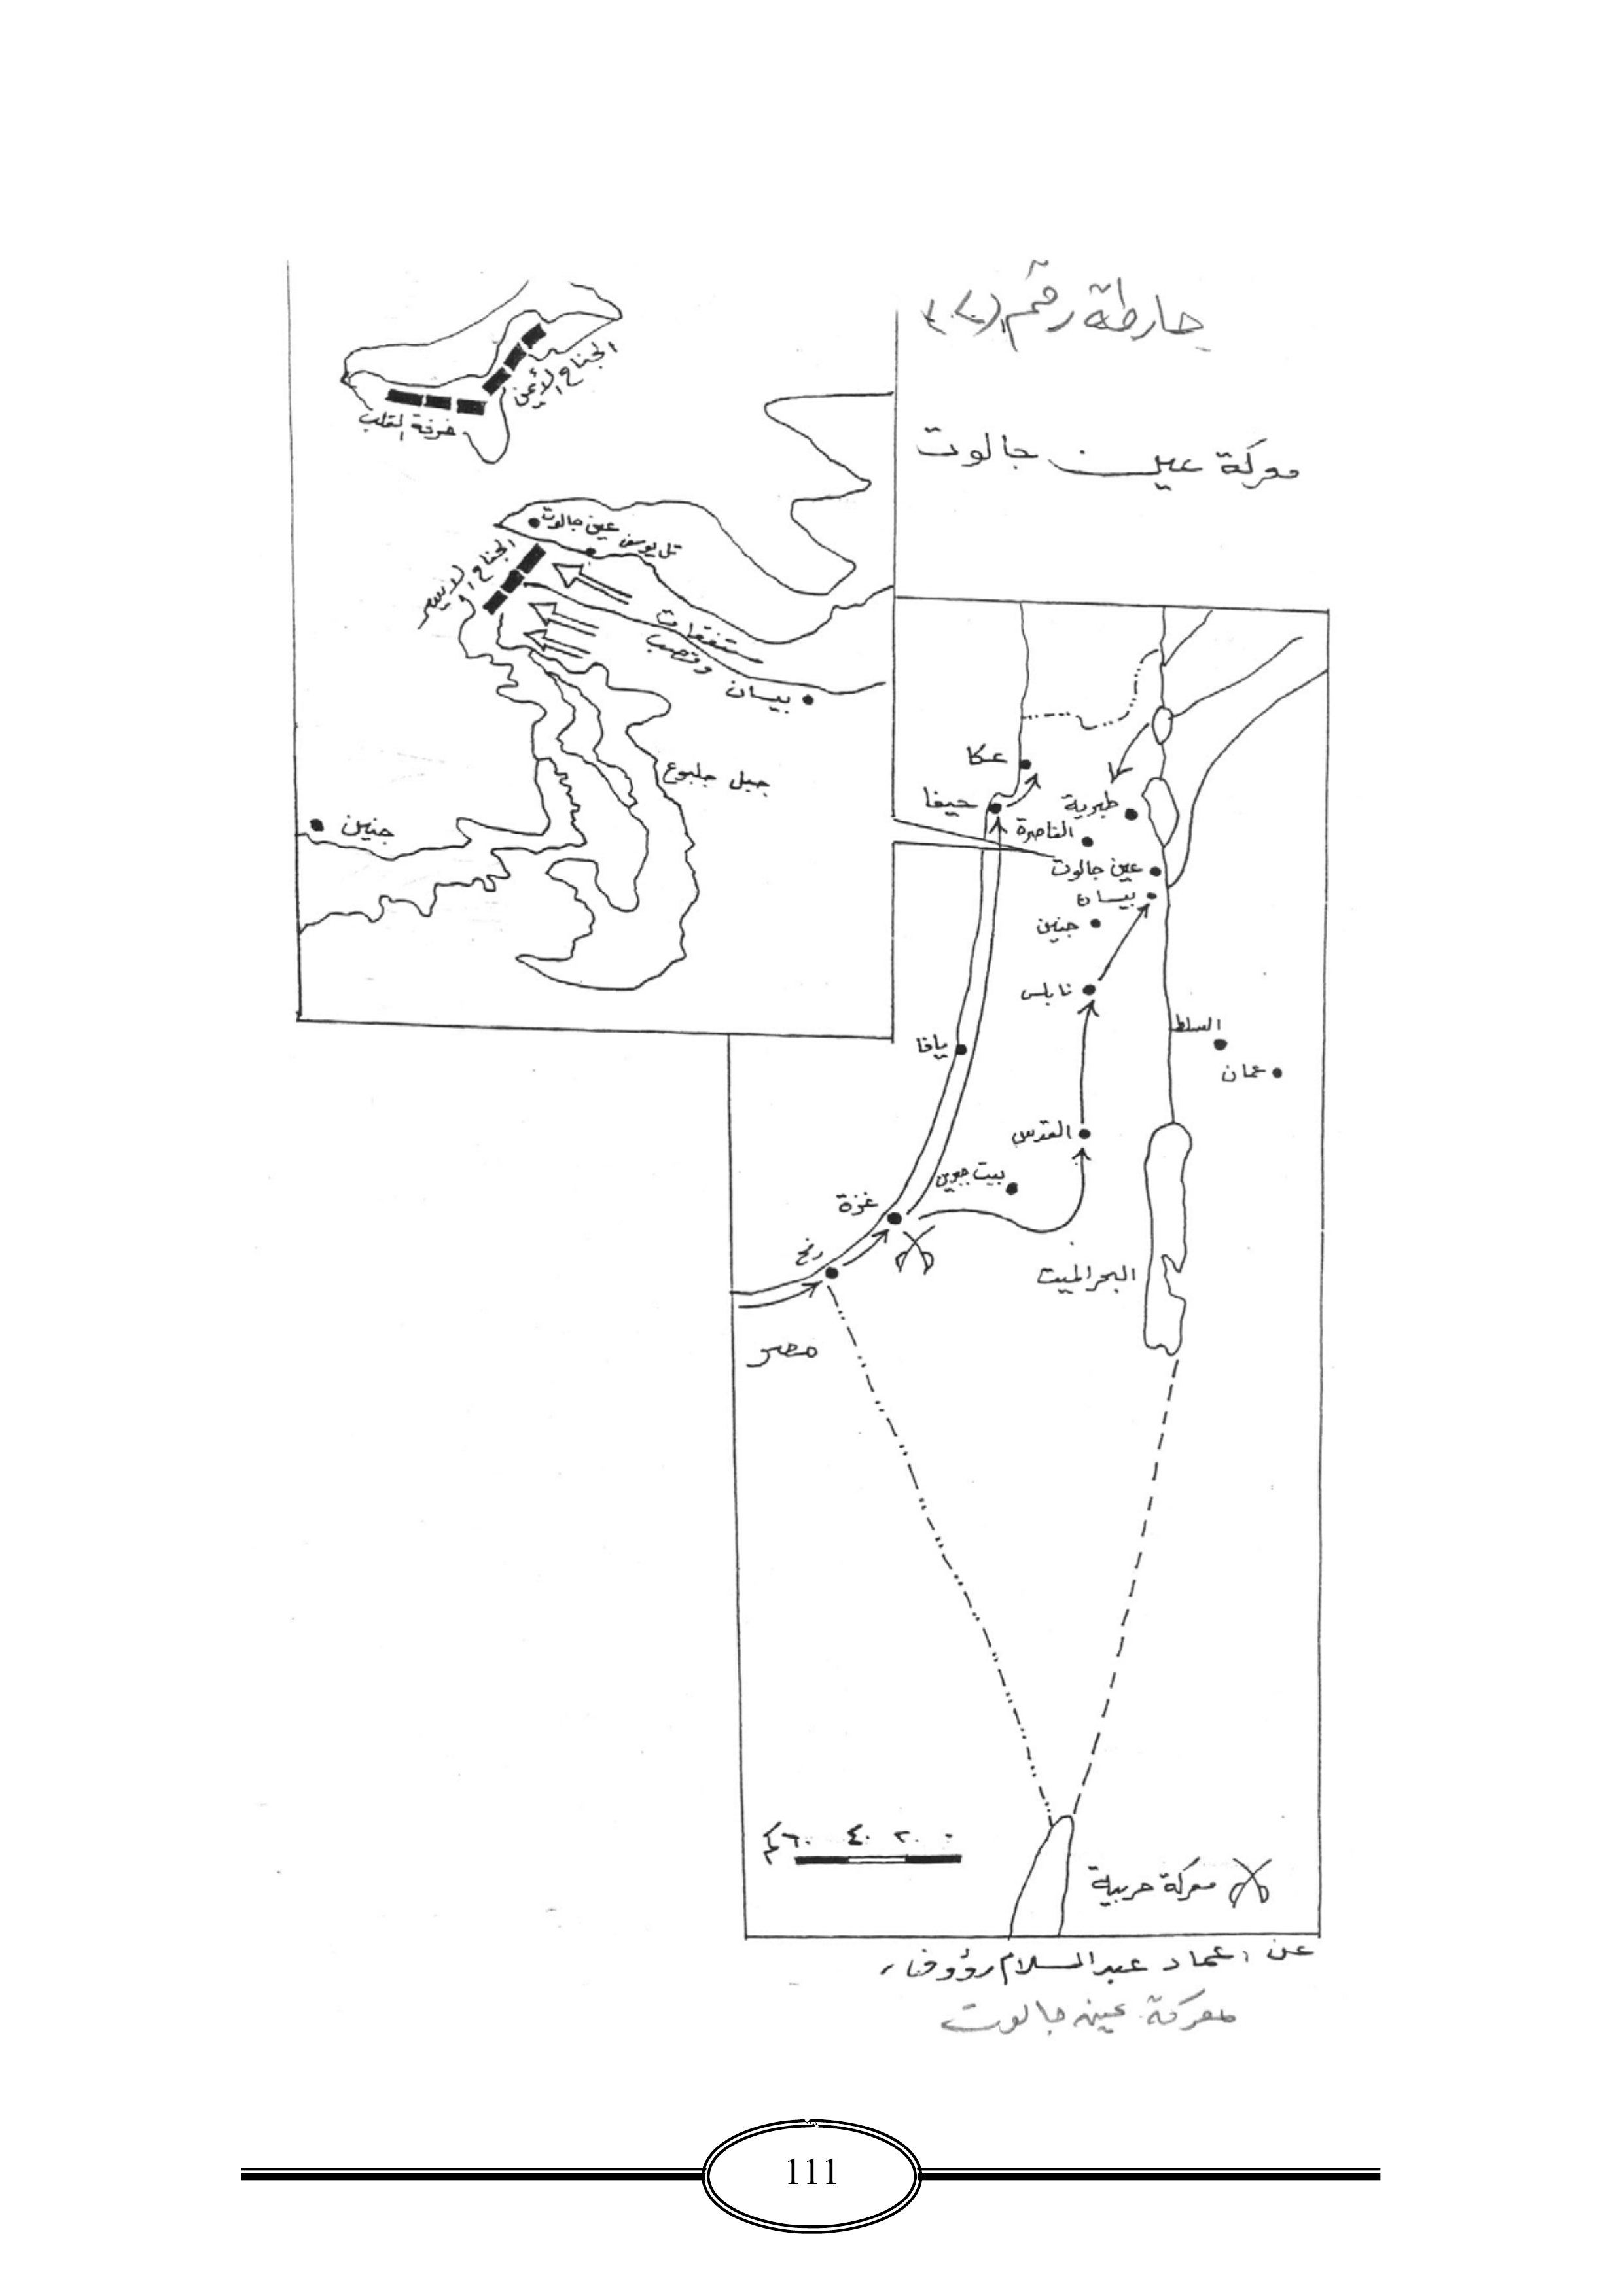 خارطة رقم
معركة عين جالوت
الجناح الأيمن
فرقة القلب
عين جالوت
تل يوسف
الجناح الأيسر
مستنقعات
وقصب
بيسان
جبل جلبوع
جنين
عكا
حيفا
طبرية
الناصرة
عين جالوت
بيسان
جنين
نابلس
السلط
يافا
عمان
القدس
بيت جبرين
غزة
رفح
البحر الميت
مصر
٠ ٢٠ ٤٠ ٦٠ كم
معركة حربية
عن : عماد عبد السلام رؤوف ،
معركة عين جالوت
111